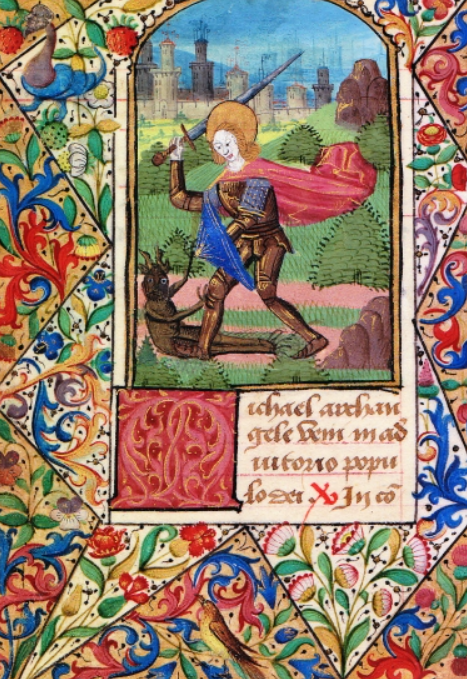 Michael archan
gele veni in ad
iutorio popu
lo dei ℣ In cō